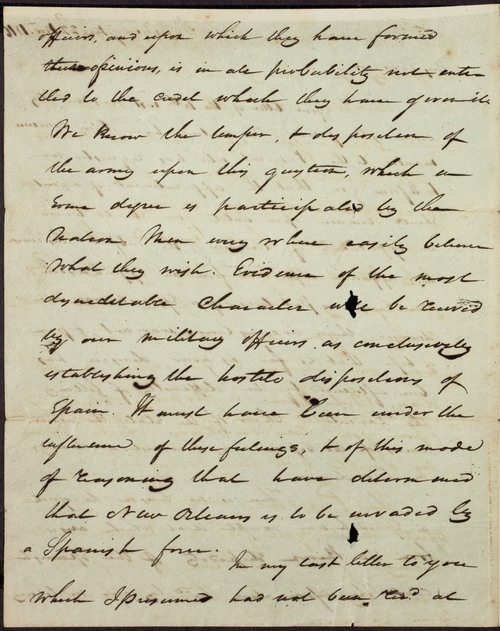 officers, and upon which they have formed
their opinions, is in all probability not enti-
tled to the credit which they have given it.
We know the temper, & disposition of
the army upon this question, which in
some degree is participated by the
nation. Men every where easily believe
what they wish. Evidence of the most
discreditable character will be received
by our military officers as conclusively
establishing the hostile dispositions of
Spain. It must have been under the
influence of these feelings, & of this mode
of reasoning that have determined
that New Orleans is to be invaded by
a Spanish force.
In my last letter to you
which I presumed had not been recd. at